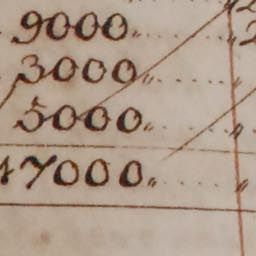 9000„
3000„
5000„
47000„